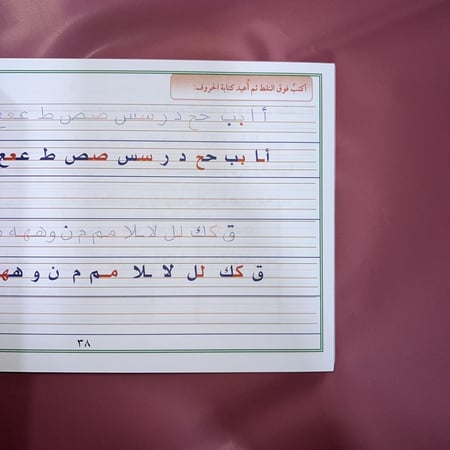 أكتبُ فوق النقط ثم أُعيد كتابة الحروف:
أ ا ببـ حح د ر سس صص ط ععع
أ ا ببـ حح د ر سس صص ط ععع
ق كك لل لا ـلا مـم م ن و ههه
ق كك لل لا ـلا مـم م ن و هه
٣٨